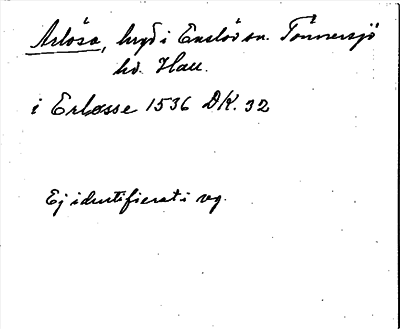 Arlösa, bygd i Enslöv sn. Tönnersjö
hd. Hall.
i Erløsse 1536 DK. 32
Ej identifierat i vg.